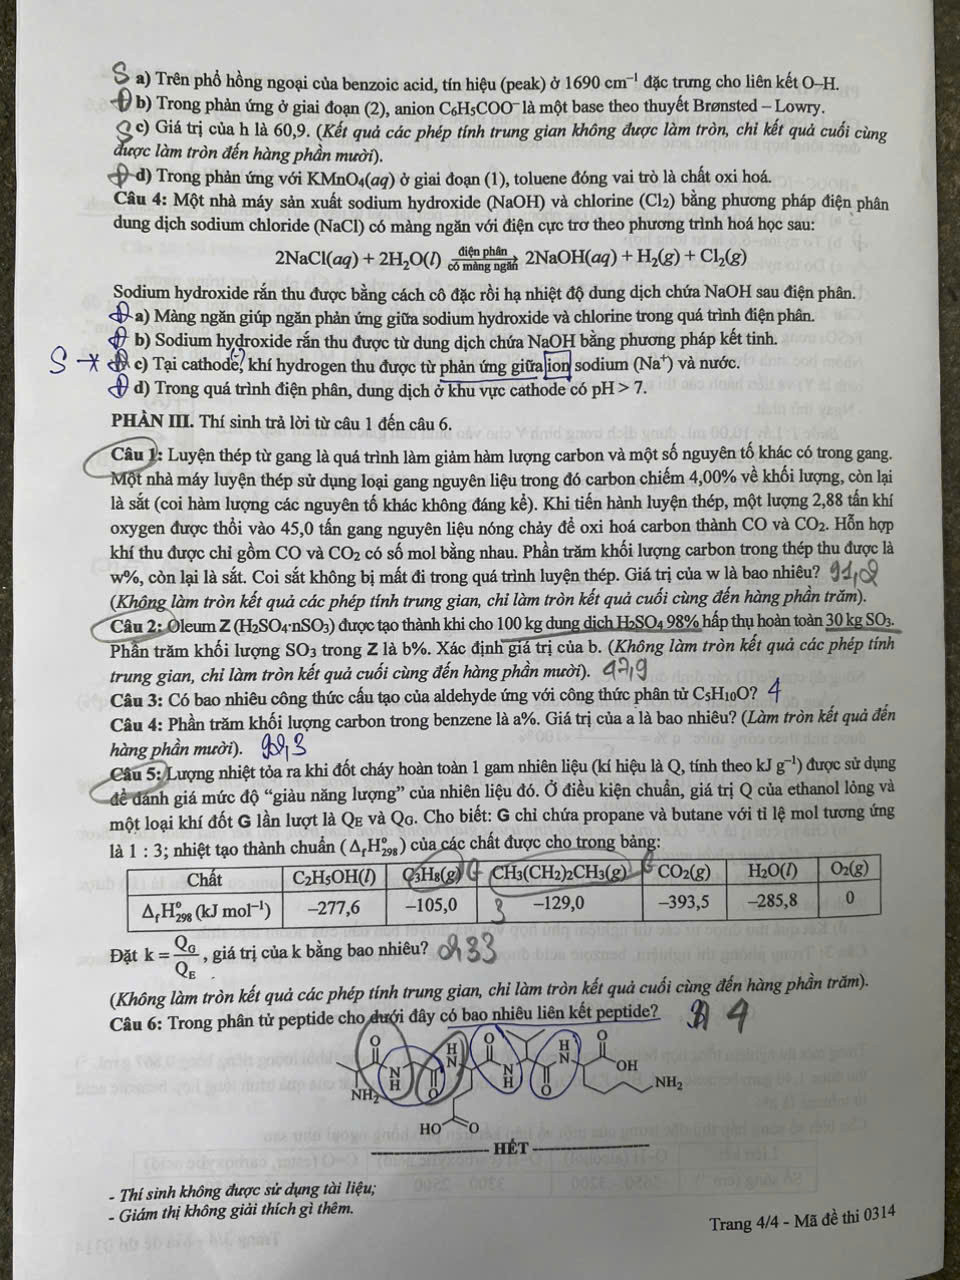 S a) Trên phổ hồng ngoại của benzoic acid, tín hiệu (peak) ở 1690 cm⁻¹ đặc trưng cho liên kết O–H.
Đ b) Trong phản ứng ở giai đoạn (2), anion C₆H₅COO⁻ là một base theo thuyết Brønsted – Lowry.
S c) Giá trị của h là 60,9. (Kết quả các phép tính trung gian không được làm tròn, chỉ kết quả cuối cùng
được làm tròn đến hàng phần mười).
Đ d) Trong phản ứng với KMnO₄(aq) ở giai đoạn (1), toluene đóng vai trò là chất oxi hoá.
Câu 4: Một nhà máy sản xuất sodium hydroxide (NaOH) và chlorine (Cl₂) bằng phương pháp điện phân
dung dịch sodium chloride (NaCl) có màng ngăn với điện cực trơ theo phương trình hoá học sau:
2NaCl(aq) + 2H₂O(l) điện phân có màng ngăn → 2NaOH(aq) + H₂(g) + Cl₂(g)
Sodium hydroxide rắn thu được bằng cách cô đặc rồi hạ nhiệt độ dung dịch chứa NaOH sau điện phân.
Đ a) Màng ngăn giúp ngăn phản ứng giữa sodium hydroxide và chlorine trong quá trình điện phân.
Đ b) Sodium hydroxide rắn thu được từ dung dịch chứa NaOH bằng phương pháp kết tinh.
S * c) Tại cathode, (-) khí hydrogen thu được từ phản ứng giữa ion sodium (Na⁺) và nước.
Đ d) Trong quá trình điện phân, dung dịch ở khu vực cathode có pH > 7.
PHẦN III. Thí sinh trả lời từ câu 1 đến câu 6.
Câu 1: Luyện thép từ gang là quá trình làm giảm hàm lượng carbon và một số nguyên tố khác có trong gang.
Một nhà máy luyện thép sử dụng loại gang nguyên liệu trong đó carbon chiếm 4,00% về khối lượng, còn lại
là sắt (coi hàm lượng các nguyên tố khác không đáng kể). Khi tiến hành luyện thép, một lượng 2,88 tấn khí
oxygen được thổi vào 45,0 tấn gang nguyên liệu nóng chảy để oxi hoá carbon thành CO và CO₂. Hỗn hợp
khí thu được chỉ gồm CO và CO₂ có số mol bằng nhau. Phần trăm khối lượng carbon trong thép thu được là
w%, còn lại là sắt. Coi sắt không bị mất đi trong quá trình luyện thép. Giá trị của w là bao nhiêu?
(Không làm tròn kết quả các phép tính trung gian, chỉ làm tròn kết quả cuối cùng đến hàng phần trăm).
Câu 2: Oleum Z (H₂SO₄·nSO₃) được tạo thành khi cho 100 kg dung dịch H₂SO₄ 98% hấp thụ hoàn toàn 30 kg SO₃.
Phần trăm khối lượng SO₃ trong Z là b%. Xác định giá trị của b. (Không làm tròn kết quả các phép tính
trung gian, chỉ làm tròn kết quả cuối cùng đến hàng phần mười). 47,9
Câu 3: Có bao nhiêu công thức cấu tạo của aldehyde ứng với công thức phân tử C₅H₁₀O? 4
Câu 4: Phần trăm khối lượng carbon trong benzene là a%. Giá trị của a là bao nhiêu? (Làm tròn kết quả đến
hàng phần mười). 92,3
Câu 5: Lượng nhiệt tỏa ra khi đốt cháy hoàn toàn 1 gam nhiên liệu (kí hiệu là Q, tính theo kJ g⁻¹) được sử dụng
để đánh giá mức độ “giàu năng lượng” của nhiên liệu đó. Ở điều kiện chuẩn, giá trị Q của ethanol lỏng và
một loại khí đốt G lần lượt là Q_E và Q_G. Cho biết: G chỉ chứa propane và butane với tỉ lệ mol tương ứng
là 1 : 3; nhiệt tạo thành chuẩn (ΔfH°₂₉₈) của các chất được cho trong bảng:
Chất C₂H₅OH(l) C₃H₈(g) CH₃(CH₂)₂CH₃(g) CO₂(g) H₂O(l) O₂(g)
ΔfH°₂₉₈ (kJ mol⁻¹) –277,6 –105,0 3 –129,0 –393,5 –285,8 0
Đặt k = Q_G/Q_E, giá trị của k bằng bao nhiêu?
(Không làm tròn kết quả các phép tính trung gian, chỉ làm tròn kết quả cuối cùng đến hàng phần trăm).
Câu 6: Trong phân tử peptide cho dưới đây có bao nhiêu liên kết peptide? 4
O H N O H N O
N H O N H O OH
NH₂ NH₂
HO O
HẾT
- Thí sinh không được sử dụng tài liệu;
- Giám thị không giải thích gì thêm.
Trang 4/4 - Mã đề thi 0314